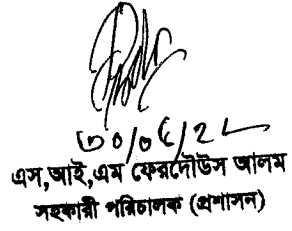 এস,আই,এম ফেরদৌউস আলম
সহকারী পরিচালক (প্রশাসন)